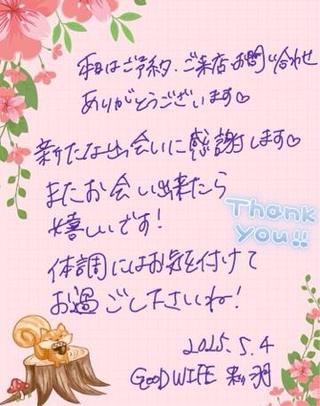 本日はご予約、ご来店、お問い合わせ
ありがとうございます♡
新たな出会いに感謝します♡
またお会い出来たら
嬉しいです!
Thank
you!!
体調にはお気を付けて
お過ごし下さいね!
2025.5.4
GOOD WIFE